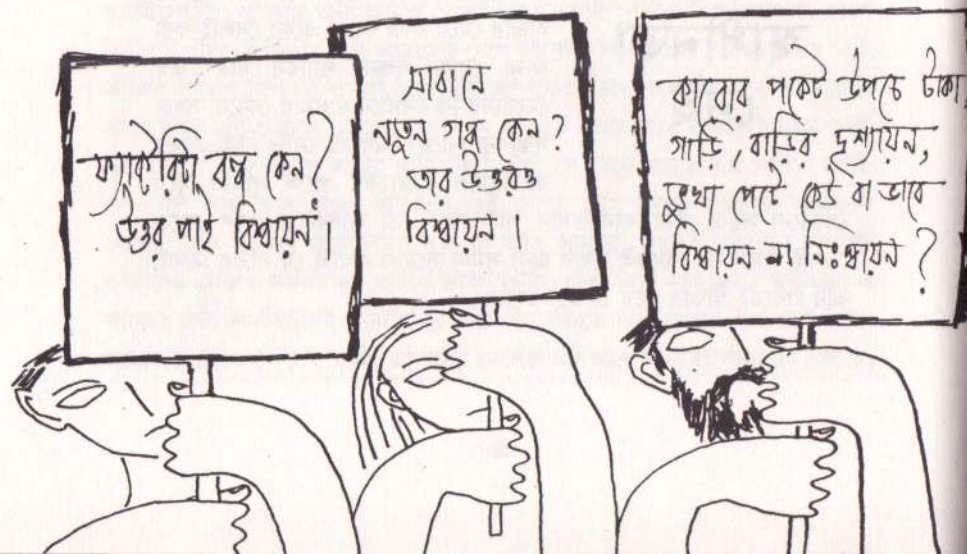 ফ্যাক্টরিটা বন্ধ কেন?
উত্তর পাই বিশ্বায়ন।
সাবানে
নতুন গন্ধ কেন?
তার উত্তরও
বিশ্বায়ন।
কারোর পকেট উপচে টাকা,
গাড়ি, বাড়ির দৃশ্যায়ন,
ভুখা পেটে কেউ বা ভাবে
বিশ্বায়ন না নিঃস্বায়ন?